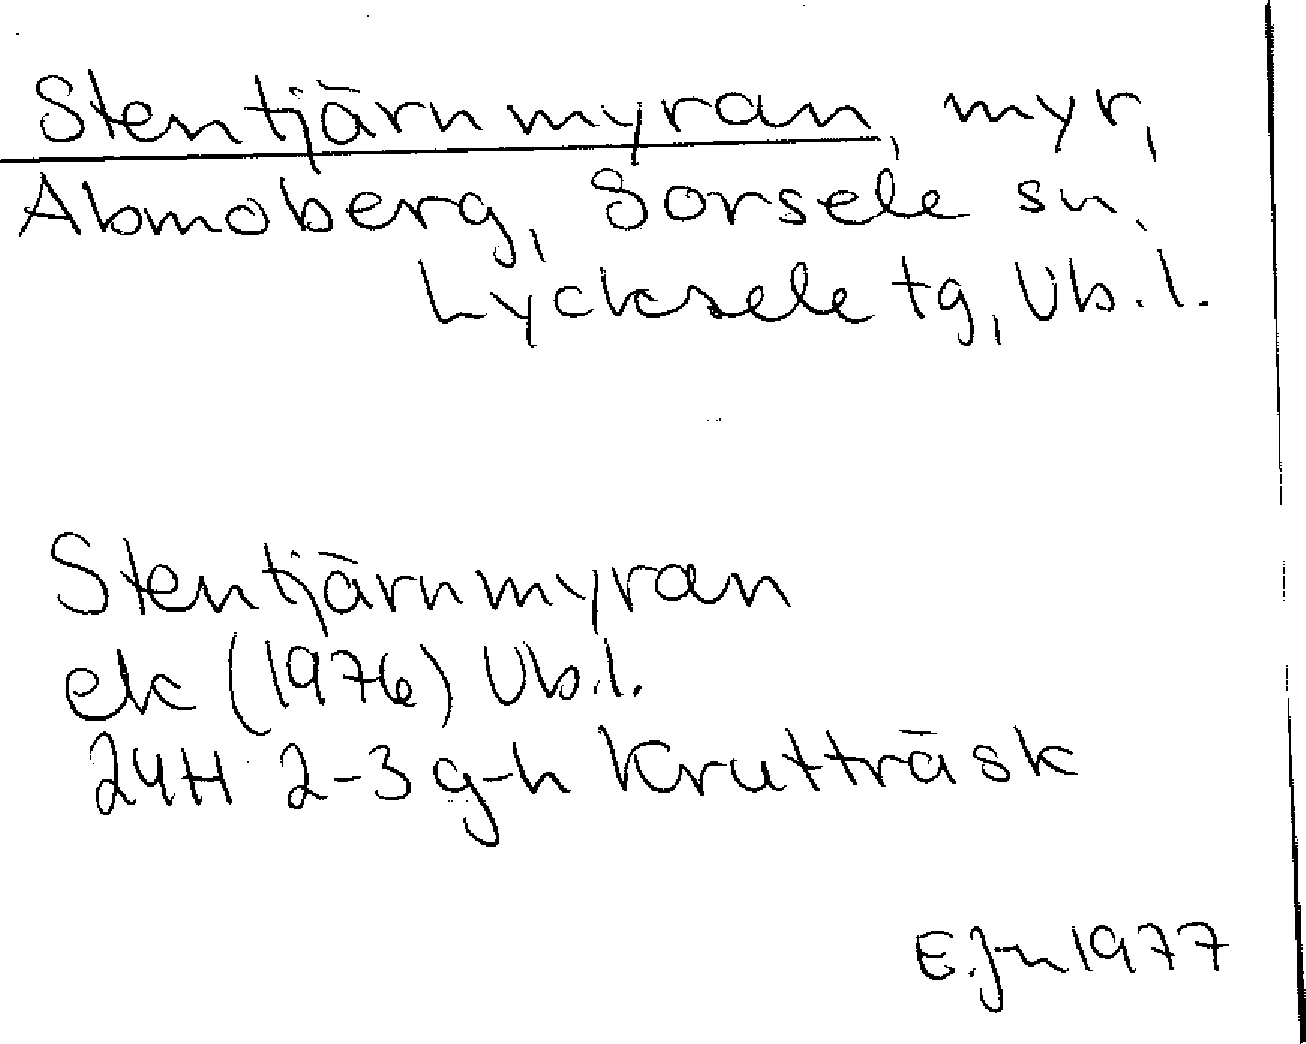 Stentjärnmyran, myr,
Abmoberg, Sorsele sn,
Lycksele tg, Vb.l.
Stentjärnmyran
ek (1976) Vb.l.
24H 2-3 g-h Krutträsk
E. Jn 1977